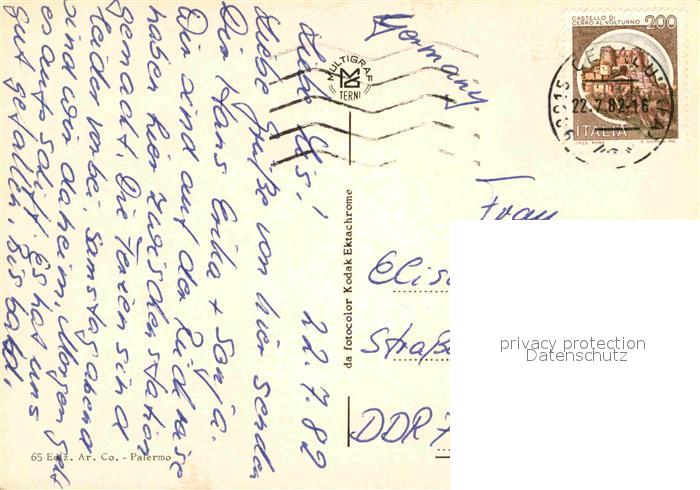 Germany
CASTELLO DI
CERRO AL VOLTURNO
200
ITALIA
22.7.82-16
MULTIGRAF
TERNI
Liebe Elis! 22.7.82
Liebe Grüße von hier senden
Dir Hans Erika + Sonja.
Wir sind auf der Rückreise
haben hier Zwischenstation
gemacht. Die Ferien sind
leider vorbei. Samstag abend
sind wir daheim. Morgen geht
es auf
gut gefallen. Bis bald.
da fotocolor Kodak Ektachrome
Frau
Elis
Straße
DDR 7
privacy protection
Datenschutz
65 Ediz. Ar. Co. - Palermo